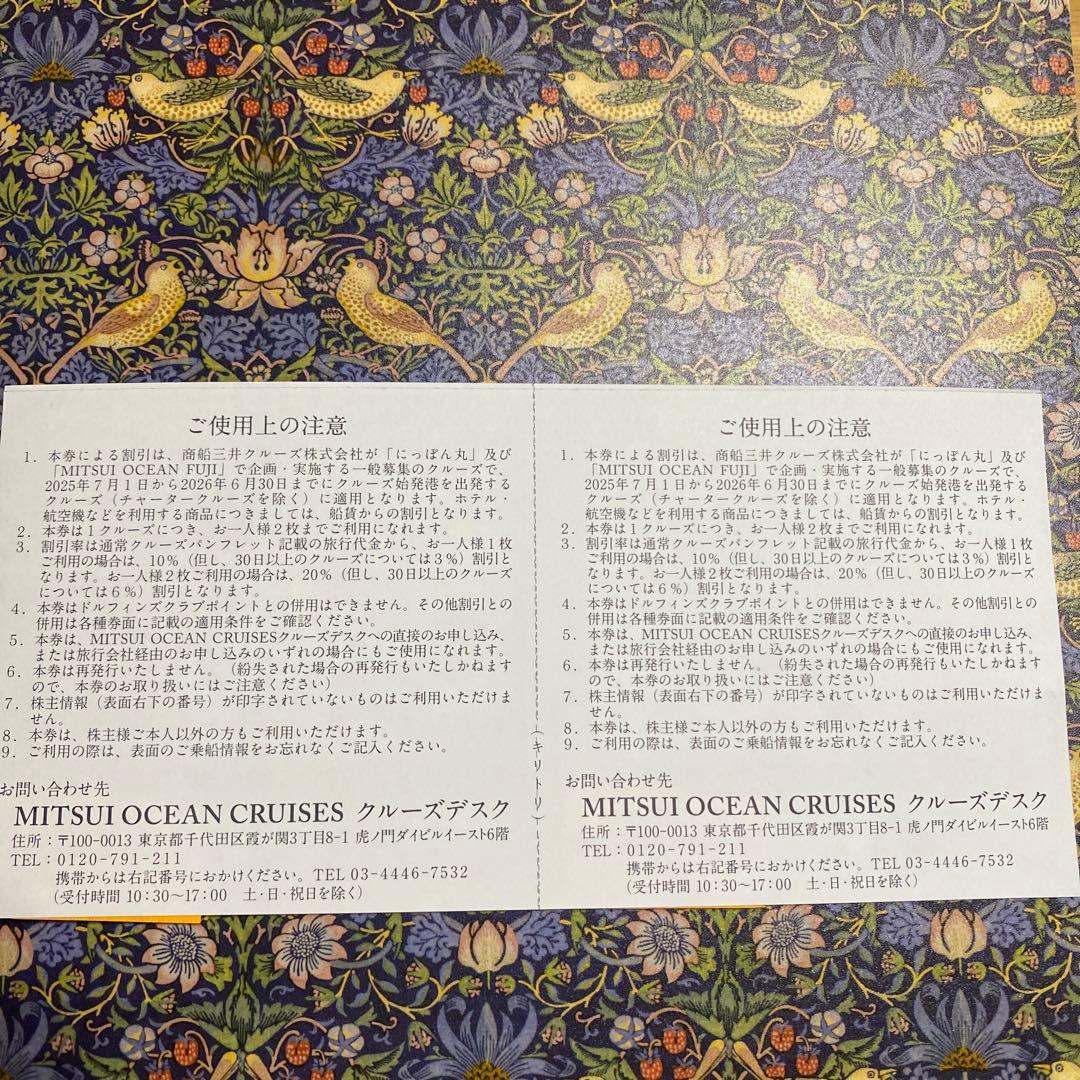 ご使用上の注意
1. 本券による割引は、商船三井クルーズ株式会社が「にっぽん丸」及び
「MITSUI OCEAN FUJI」で企画・実施する一般募集のクルーズで、
2025年7月1日から2026年6月30日までにクルーズ始発港を出発する
クルーズ（チャータークルーズを除く）に適用となります。ホテル・
航空機などを利用する商品につきましては、船賃からの割引となります。
2. 本券は1クルーズにつき、お一人様2枚までご利用になれます。
3. 割引率は通常クルーズパンフレット記載の旅行代金から、お一人様1枚
ご利用の場合は、10%（但し、30日以上のクルーズについては3%）割引と
なります。お一人様2枚ご利用の場合は、20%（但し、30日以上のクルーズ
については6%）割引となります。
4. 本券はドルフィンズクラブポイントとの併用はできません。その他割引との
併用は各種券面に記載の適用条件をご確認ください。
5. 本券は、MITSUI OCEAN CRUISESクルーズデスクへの直接のお申し込み、
または旅行会社経由のお申し込みのいずれの場合にもご使用になれます。
6. 本券は再発行いたしません。（紛失された場合の再発行もいたしかねます
ので、本券のお取り扱いにはご注意ください）
7. 株主情報（表面右下の番号）が印字されていないものはご利用いただけま
せん。
8. 本券は、株主様ご本人以外の方もご利用いただけます。
9. ご利用の際は、表面のご乗船情報をお忘れなくご記入ください。
お問い合わせ先
MITSUI OCEAN CRUISES クルーズデスク
住所：〒100-0013 東京都千代田区霞が関3丁目8-1 虎ノ門ダイビルイースト6階
TEL：0120-791-211
携帯からは右記番号におかけください。TEL 03-4446-7532
（受付時間 10:30～17:00 土・日・祝日を除く）
（キリトリ）
ご使用上の注意
1. 本券による割引は、商船三井クルーズ株式会社が「にっぽん丸」及び
「MITSUI OCEAN FUJI」で企画・実施する一般募集のクルーズで、
2025年7月1日から2026年6月30日までにクルーズ始発港を出発する
クルーズ（チャータークルーズを除く）に適用となります。ホテル・
航空機などを利用する商品につきましては、船賃からの割引となります。
2. 本券は1クルーズにつき、お一人様2枚までご利用になれます。
3. 割引率は通常クルーズパンフレット記載の旅行代金から、お一人様1枚
ご利用の場合は、10%（但し、30日以上のクルーズについては3%）割引と
なります。お一人様2枚ご利用の場合は、20%（但し、30日以上のクルーズ
については6%）割引となります。
4. 本券はドルフィンズクラブポイントとの併用はできません。その他割引との
併用は各種券面に記載の適用条件をご確認ください。
5. 本券は、MITSUI OCEAN CRUISESクルーズデスクへの直接のお申し込み、
または旅行会社経由のお申し込みのいずれの場合にもご使用になれます。
6. 本券は再発行いたしません。（紛失された場合の再発行もいたしかねます
ので、本券のお取り扱いにはご注意ください）
7. 株主情報（表面右下の番号）が印字されていないものはご利用いただけま
せん。
8. 本券は、株主様ご本人以外の方もご利用いただけます。
9. ご利用の際は、表面のご乗船情報をお忘れなくご記入ください。
お問い合わせ先
MITSUI OCEAN CRUISES クルーズデスク
住所：〒100-0013 東京都千代田区霞が関3丁目8-1 虎ノ門ダイビルイースト6階
TEL：0120-791-211
携帯からは右記番号におかけください。TEL 03-4446-7532
（受付時間 10:30～17:00 土・日・祝日を除く）